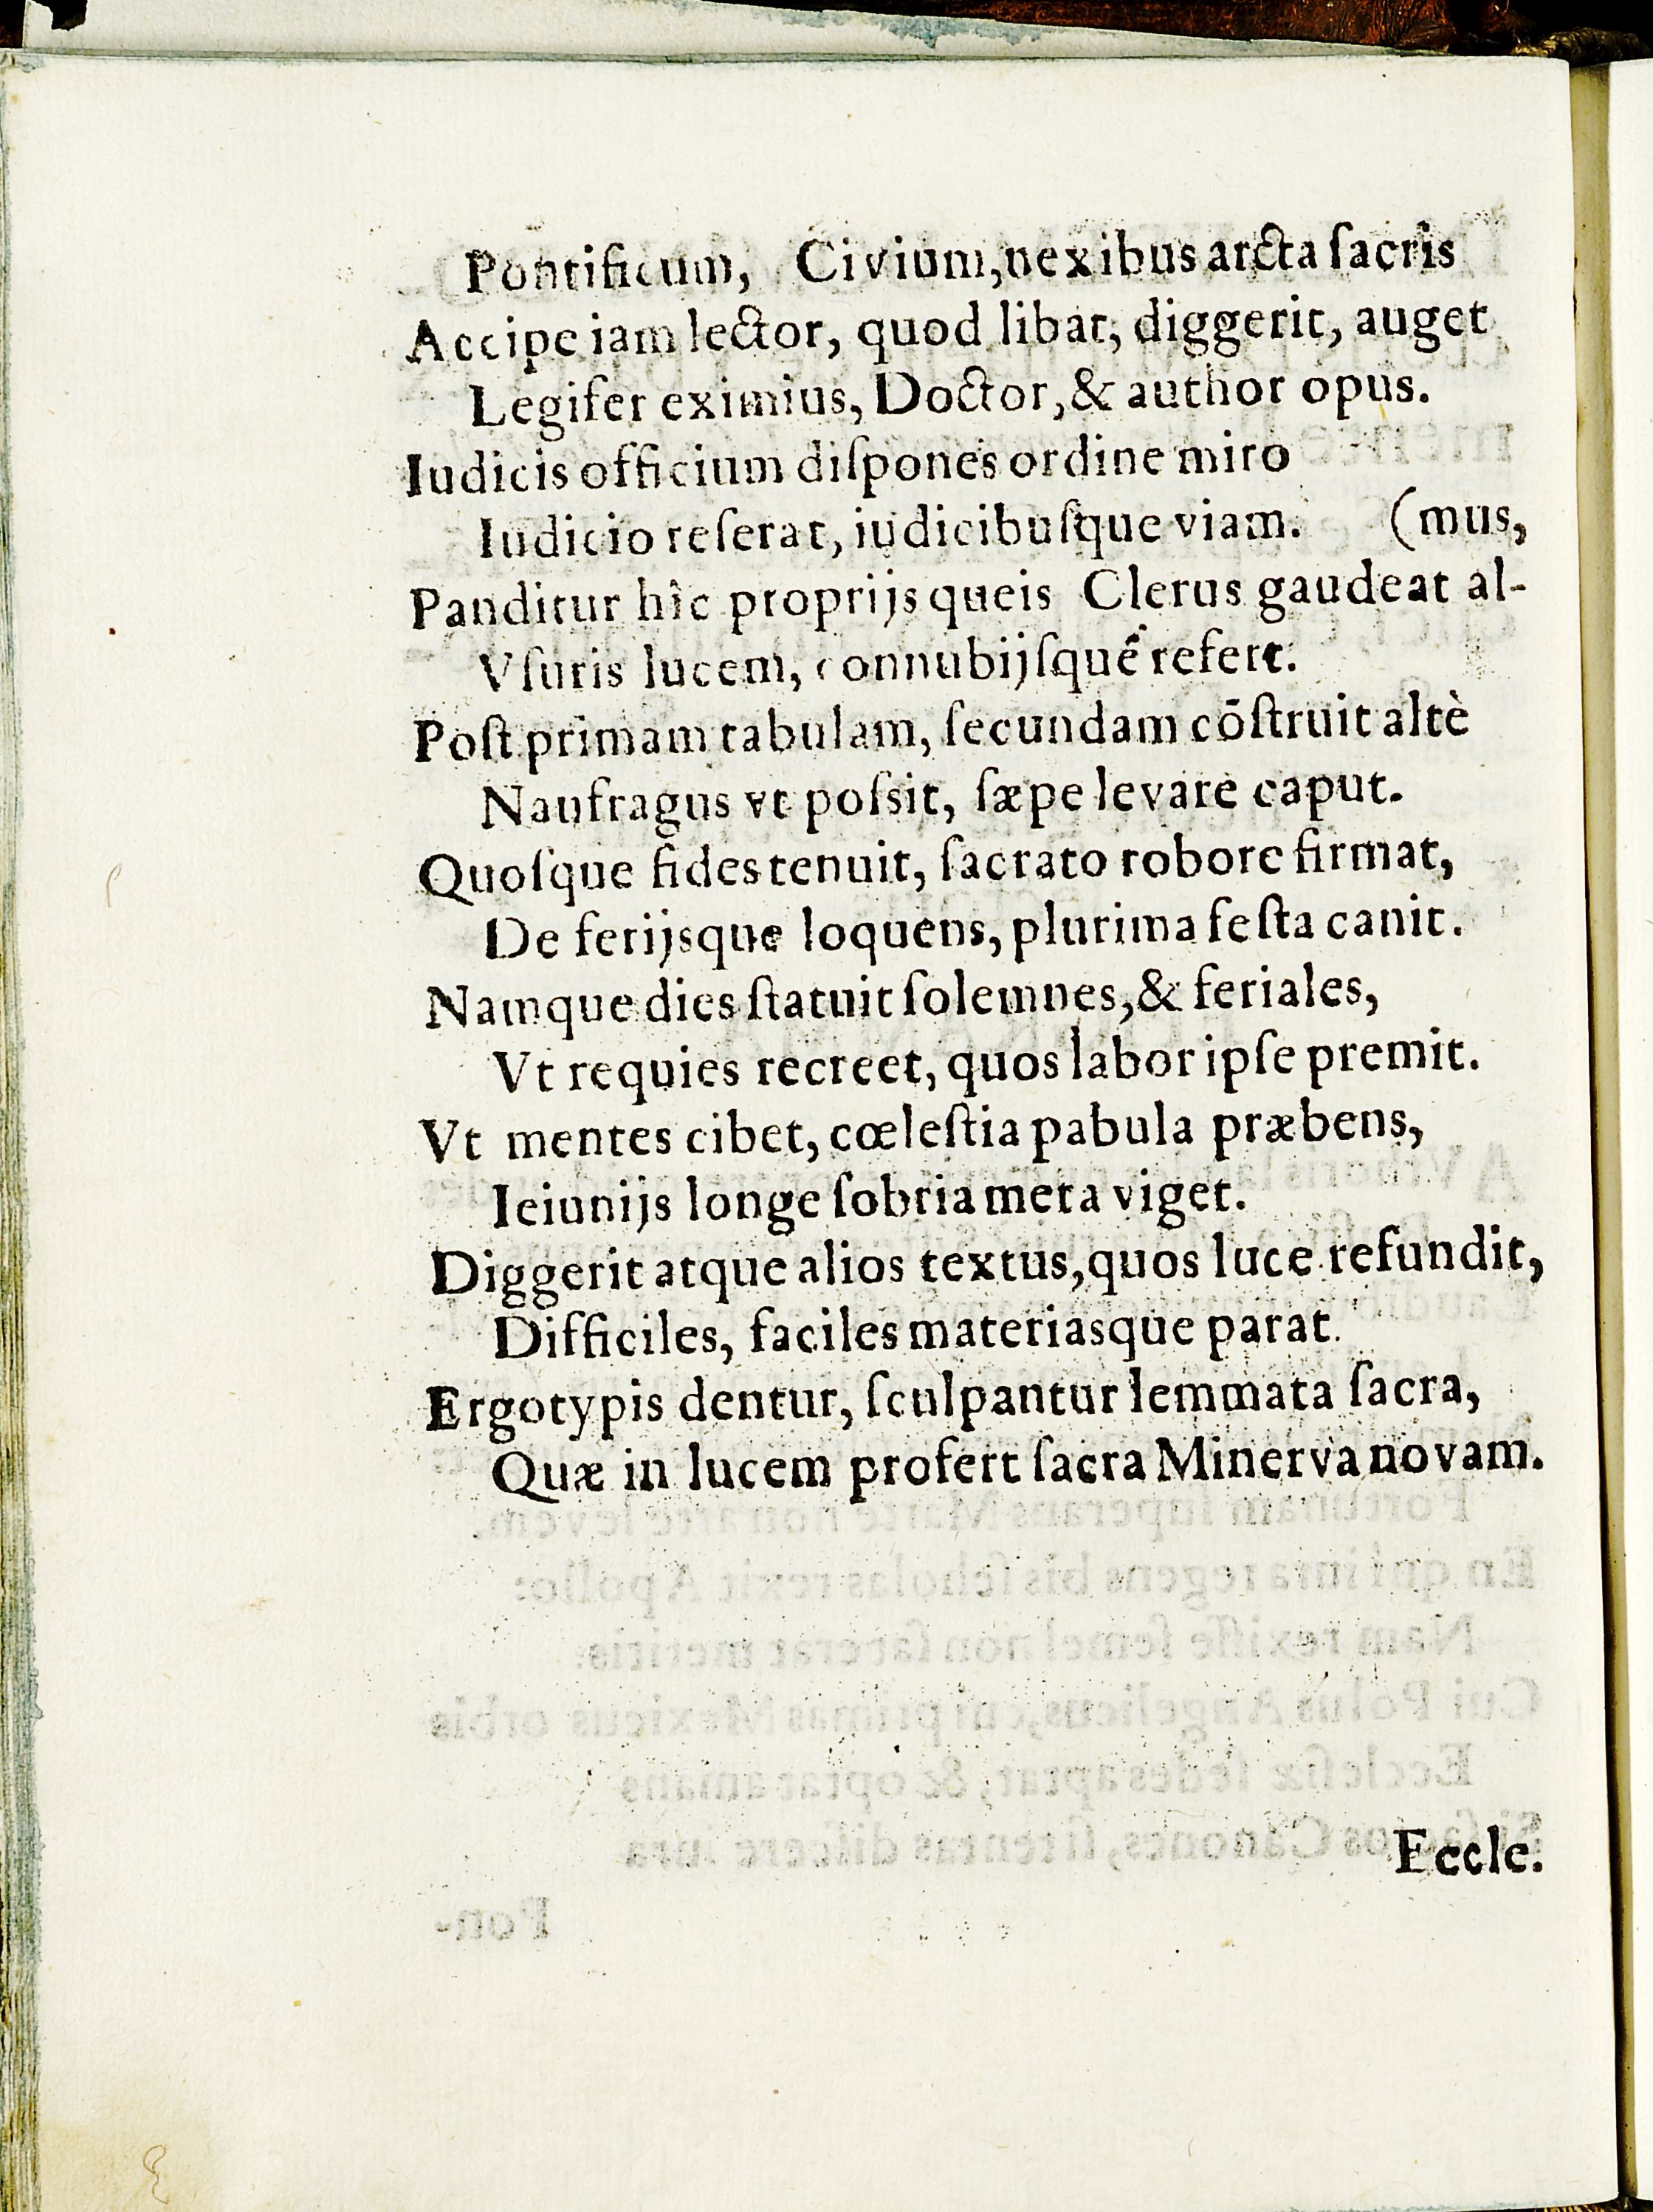 Pontificum, Civium, nexibus arcta ſacris
Accipe iam lector, quod libat, diggerit, auget
Legifer eximius, Doctor, & author opus.
Iudicis officium diſpones ordine miro
Iudicio reſerat, iudicibuſque viam. (mus,
Panditur hîc proprijs queis Clerus gaudeat al-
Vſuris lucem, connubijſqué refert.
Poſt primam tabulam, ſecundam cōſtruit altè
Naufragus vt poſsit, ſæpe levare caput.
Quoſque fides tenuit, ſacrato robore firmat,
De ferijsque loquens, plurima feſta canit.
Namque dies ſtatuit ſolemnes, & feriales,
Vt requies recreet, quos labor ipſe premit.
Vt mentes cibet, cœleſtia pabula præbens,
Ieiunijs longe ſobria meta viget.
Diggerit atque alios textus, quos luce refundit,
Difficiles, faciles materiasque parat.
Ergo typis dentur, ſculpantur lemmata ſacra,
Quæ in lucem profert ſacra Minerva novam.
Eccle.